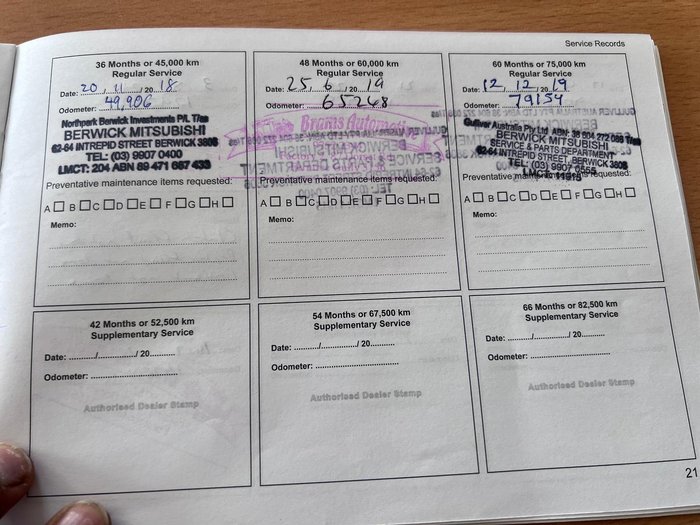 Service Records
36 Months or 45,000 km
Regular Service
Date: 20 / 11 / 2018
Odometer: 49,906
Northpark Berwick Investments P/L T/as
BERWICK MITSUBISHI
62-64 INTREPID STREET BERWICK 3806
TEL: (03) 9907 0400
LMCT: 204 ABN 69 471 667 433
Preventative maintenance items requested:
A B C D E F G H
Memo:
48 Months or 60,000 km
Regular Service
Date: 25 / 6 / 2019
Odometer: 65248
Preventative maintenance items requested:
A B C D E F G H
Memo:
60 Months or 75,000 km
Regular Service
Date: 12 / 12 / 2019
Odometer: 79154
Gulliver Australia Pty Ltd ABN
BERWICK MITSUBISHI
SERVICE & PARTS DEPARTMENT
62-64 INTREPID STREET, BERWICK 3806
TEL: (03) 9907
LMCT:
Preventative requested:
A B C D E F G H
Memo:
42 Months or 52,500 km
Supplementary Service
Date: / / 20
Odometer:
Authorised Dealer Stamp
54 Months or 67,500 km
Supplementary Service
Date: / / 20
Odometer:
Authorised Dealer Stamp
66 Months or 82,500 km
Supplementary Service
Date: / / 20
Odometer:
Authorised Dealer Stamp
21